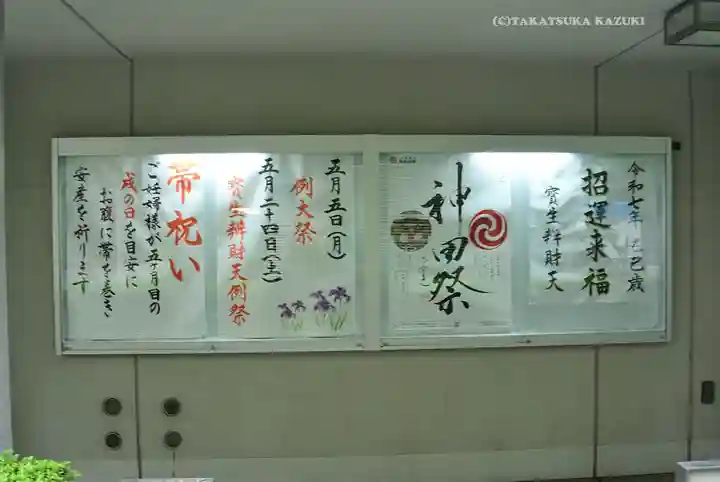 (C)TAKATSUKA KAZUKI
令和七年 乙巳歳
招運来福
寳生辨財天
神田祭
五月五日(月)
例大祭
五月二十四日(土)
寳生辨財天例祭
帯祝い
ご妊婦様が五ヶ月目の
戌の日を目安に
お腹に帯を巻き
安産を祈ります